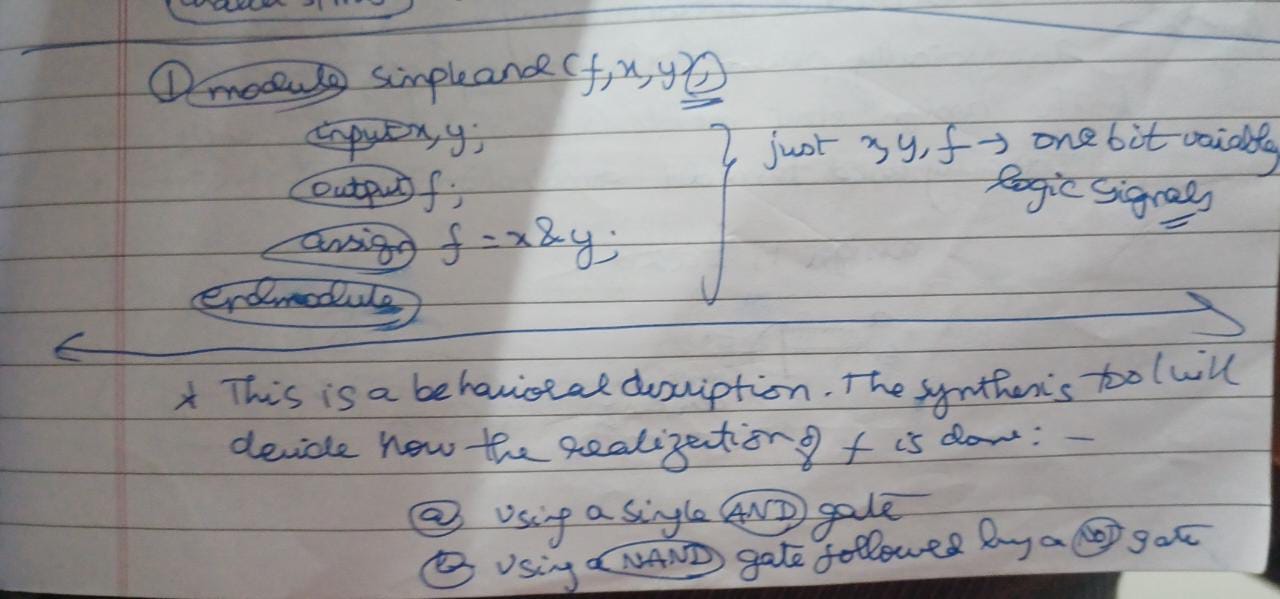 ① module simpleand (f,x,y);
input x,y;
output f;
assign f = x & y;
endmodule
just x,y,f → one bit vaiably
logic signals
* This is a behavioral desuription. The synthesis tool will
decide how the realization of f is done: -
ⓐ Using a single AND gate
ⓑ Using a NAND gate followed by a NOT gate